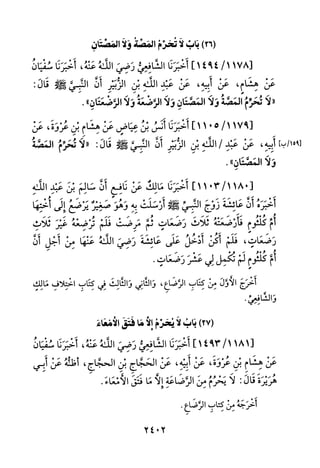 (٢٦) بَابُ لاَ تُحَرِّمُ المَصَّةُ وَلاَ المَصَّتَانِ
[١١٧٨/ ١٤٩٤] أَخْبَرَنَا الشَّافِعِيُّ رَضِيَ اللَّـهُ عَنْهُ، أَخْبَرَنَا سُفْيَانُ
عَنْ هِشَامٍ، عَنْ أَبِيهِ، عَنْ عَبْدِ اللَّـهِ بْنِ الزُّبَيْرِ أَنَّ النَّبِيَّ ﷺ قَالَ:
«لاَ تُحَرِّمُ المَصَّةُ وَلاَ المَصَّتَانِ وَلاَ الرَّضْعَةُ وَلاَ الرَّضْعَتَانِ».
[١١٧٩/ ١١٠٥] أَخْبَرَنَا أَنَسُ بْنُ عِيَاضٍ عَنْ هِشَامِ بْنِ عُرْوَةَ، عَنْ
[١٥٩/ب] أَبِيهِ، عَنْ عَبْدِ / اللَّـهِ بْنِ الزُّبَيْرِ أَنَّ النَّبِيَّ ﷺ قَالَ: «لاَ تُحَرِّمُ المَصَّةُ
وَلاَ المَصَّتَانِ».
[١١٨٠/ ١١٠٣] أَخْبَرَنَا مَالِكٌ عَنْ نَافِعٍ أَنَّ سَالِمَ بْنَ عَبْدِ اللَّـهِ
أَخْبَرَهُ أَنَّ عَائِشَةَ زَوْجَ النَّبِيِّ ﷺ أَرْسَلَتْ بِهِ وَهُوَ صَغِيرٌ يَرْضَعُ إِلَى أُخْتِهَا
أُمِّ كُلْثُومٍ فَأَرْضَعَتْهُ ثَلاَثَ رَضَعَاتٍ ثُمَّ مَرِضَتْ فَلَمْ تُرْضِعْهُ غَيْرَ ثَلاَثِ
رَضَعَاتٍ، فَلَمْ أَكُنْ أَدْخُلُ عَلَى عَائِشَةَ رَضِيَ اللَّـهُ عَنْهَا مِنْ أَجْلِ أَنَّ
أُمَّ كُلْثُومٍ لَمْ تُكْمِلْ لِي عَشْرَ رَضَعَاتٍ.
أَخْرَجَ الأَوَّلَ مِنْ كِتَابِ الرَّضَاعِ، وَالثَّانِي وَالثَّالِثَ فِي كِتَابِ اخْتِلاَفِ مَالِكٍ
وَالشَّافِعِيِّ.
(٢٧) بَابُ لاَ يُحَرِّمُ إِلاَّ مَا فَتَقَ الأَمْعَاءَ
[١١٨١/ ١٤٩٣] أَخْبَرَنَا الشَّافِعِيُّ رَضِيَ اللَّـهُ عَنْهُ، أَخْبَرَنَا سُفْيَانُ
عَنْ هِشَامِ بْنِ عُرْوَةَ، عَنْ أَبِيْهِ، عَنْ الحَجَّاجِ بْنِ الحجَّاجِ، أظنُّهُ عَنْ أَبِي
هُرَيْرَةَ قَالَ: لاَ يُحَرِّمُ مِنَ الرَّضَاعَةِ إِلاَّ مَا فَتَقَ الأَمْعَاءَ.
أَخْرَجَهُ مِنْ كِتَابِ الرَّضَاعِ.
٢٤٠٢